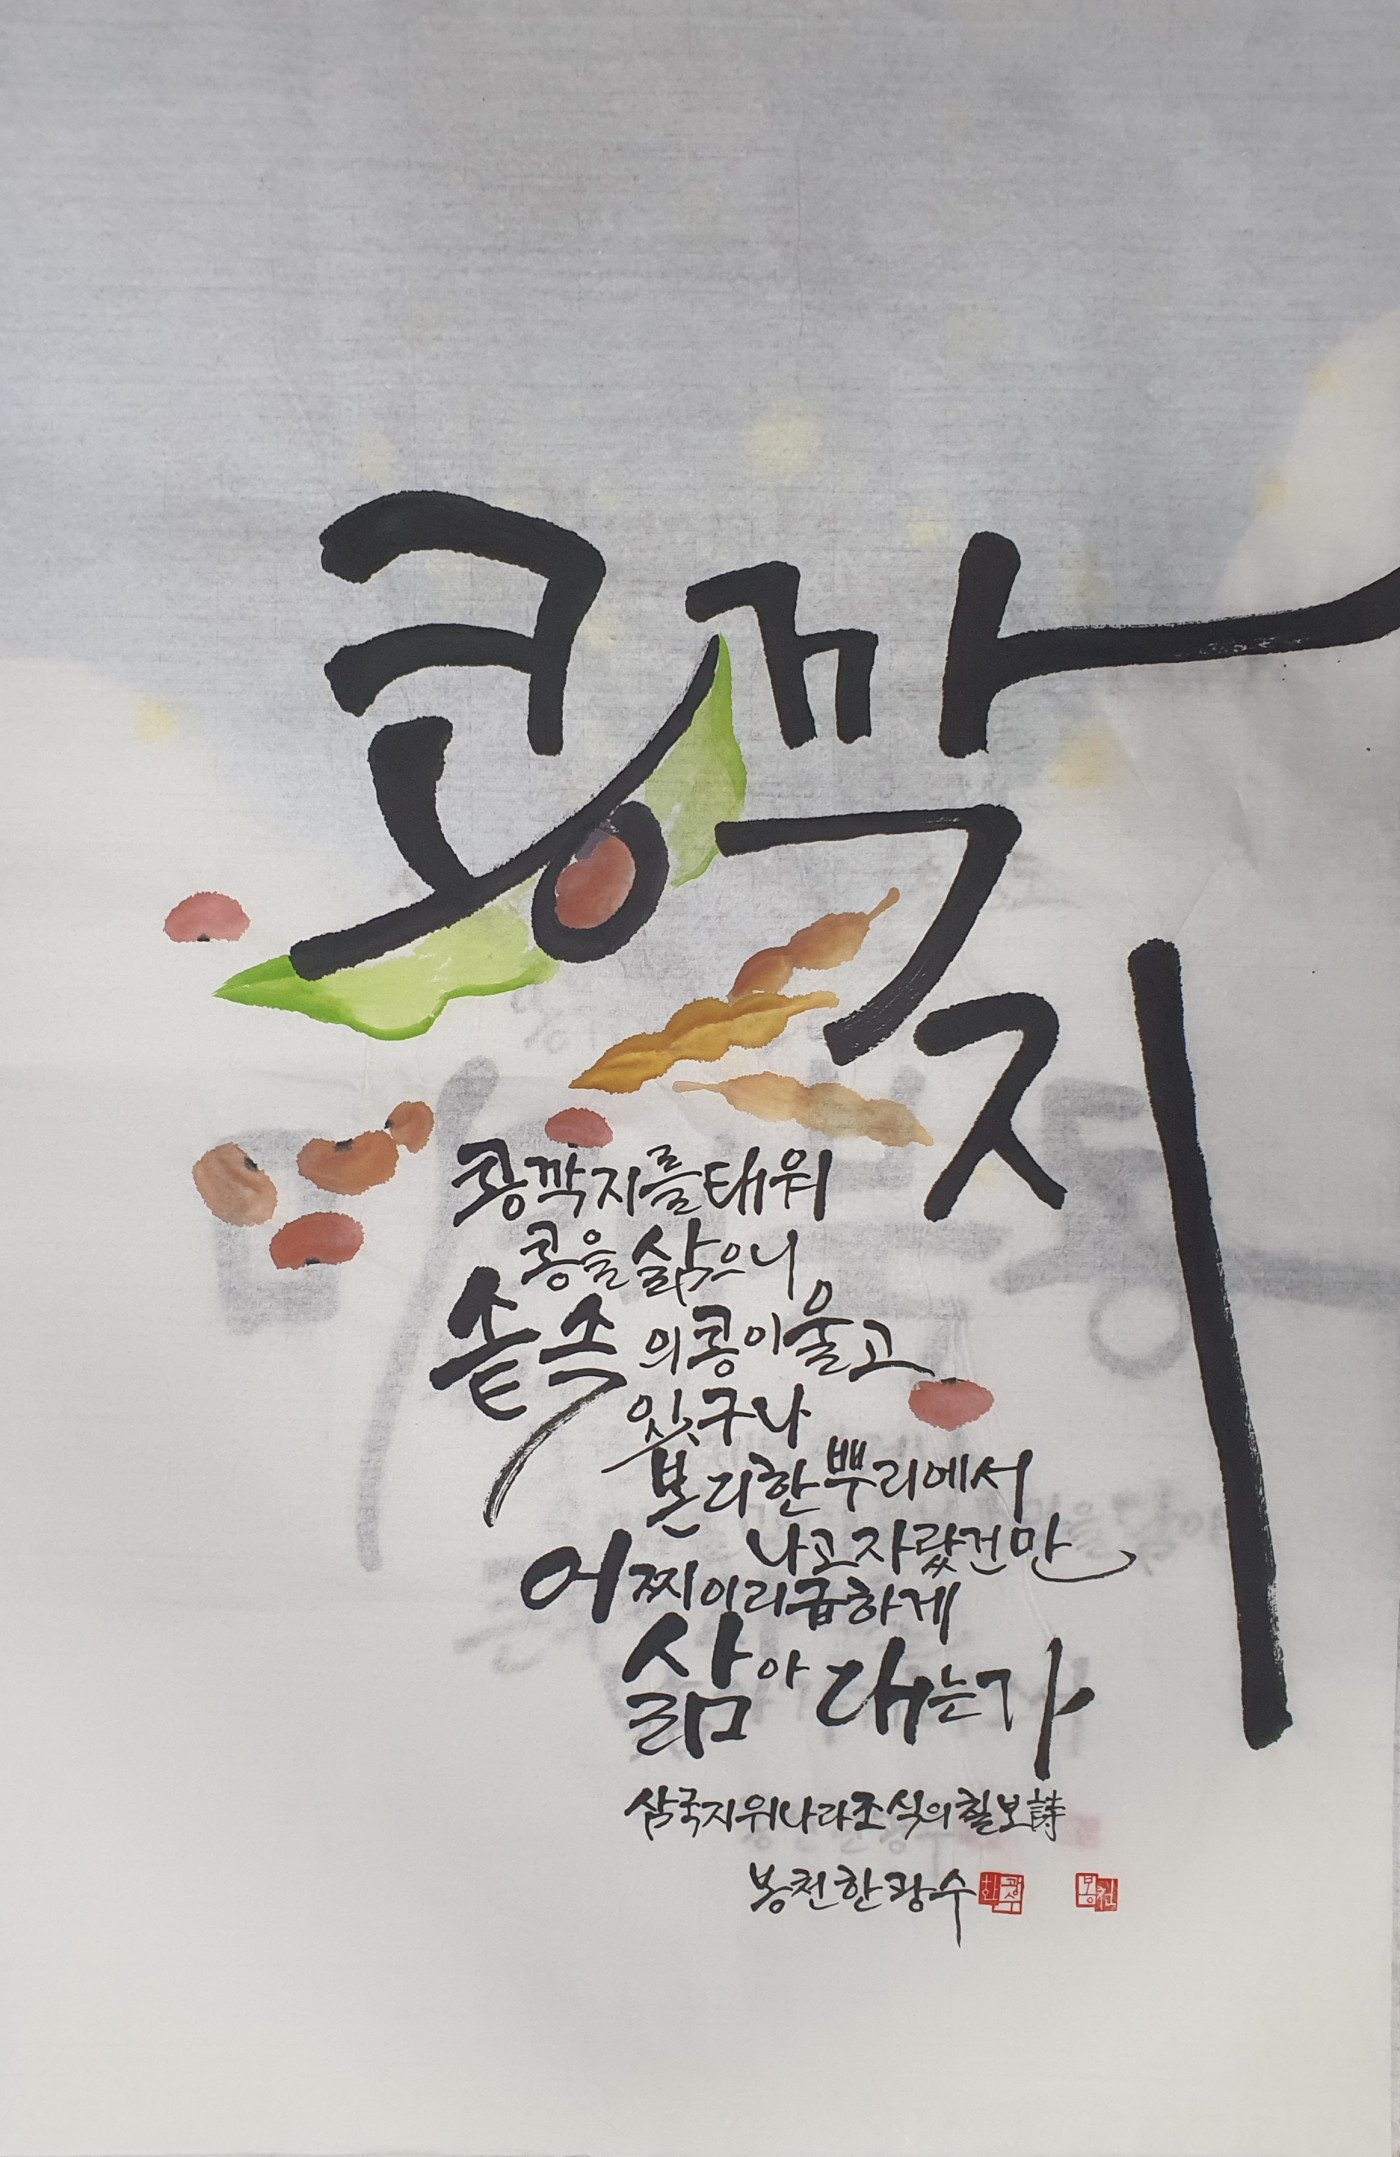 콩깍지
콩깍지를 태워
콩을 삶으니
솥 속의 콩이 울고
있구나
본디 한 뿌리에서
나고 자랐건만
어찌 이리 급하게
삶아 대는가
삼국지 위나라 조식의 칠보詩
봉천 한광수